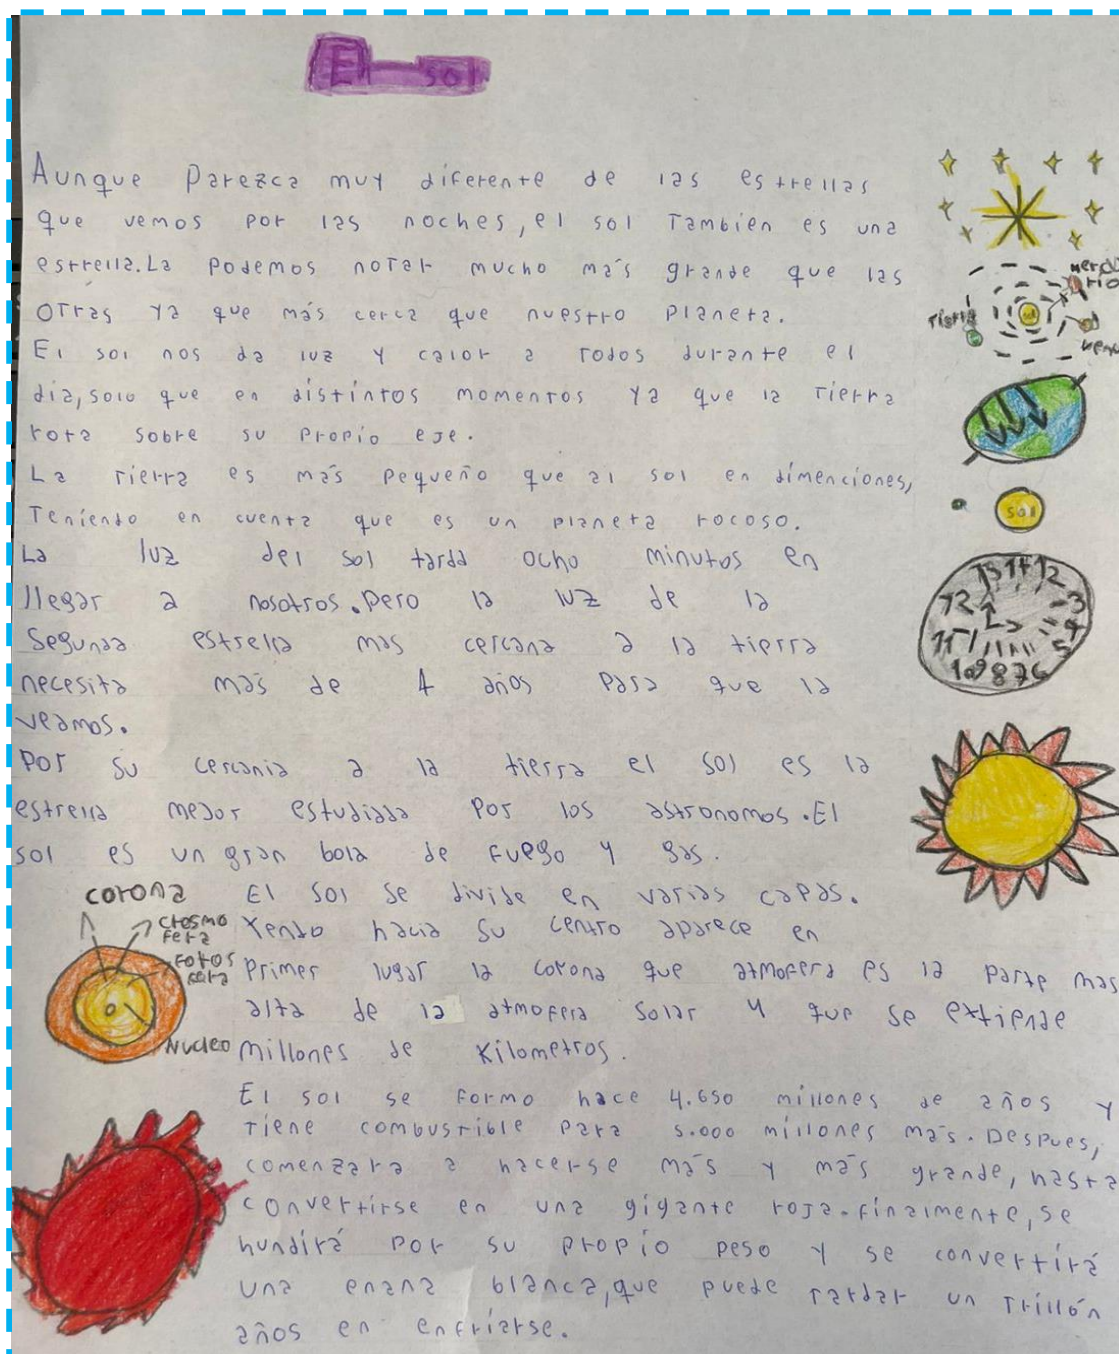 El sol
Aunque parezca muy diferente de las estrellas
que vemos por las noches, el sol Tambien es una
estrella. La podemos notar mucho más grande que las
otras ya que más cerca que nuestro planeta.
El sol nos da luz y calor a todos durante el
dia, solo que en distintos momentos ya que la Tierra
rota sobre su propio eje.
La tierra es más pequeño que al sol en dimenciones,
Teniendo en cuenta que es un planeta rocoso.
La luz del sol tarda ocho minutos en
llegar a nosotros. pero la luz de la
segunda estrella mas cercana a la tierra
necesita más de 4 años para que la
veamos.
Por su cercania a la tierra el sol es la
estrella mejor estudiada por los astronomos. El
sol es un gran bola de fuego y gas.
El sol se divide en varias capas.
Yendo hacia su centro aparece en
primer lugar la corona que atmofera es la parte mas
alta de la atmofera solar y que se extiende
millones de kilometros.
El sol se formo hace 4.650 millones de años y
tiene combustible para 5.000 millones más. Despues,
comenzara a hacerse más y más grande, hasta
convertirse en una gigante roja. finalmente, se
hundirá por su propio peso y se convertirá
una enana blanca, que puede tardar un trillón
años en enfriarse.
merdcu
rio
tierra
venu
sol
12
3
4
5
6
7
8
9
10
corona
crosmo
fera
fotos
fera
Nucleo